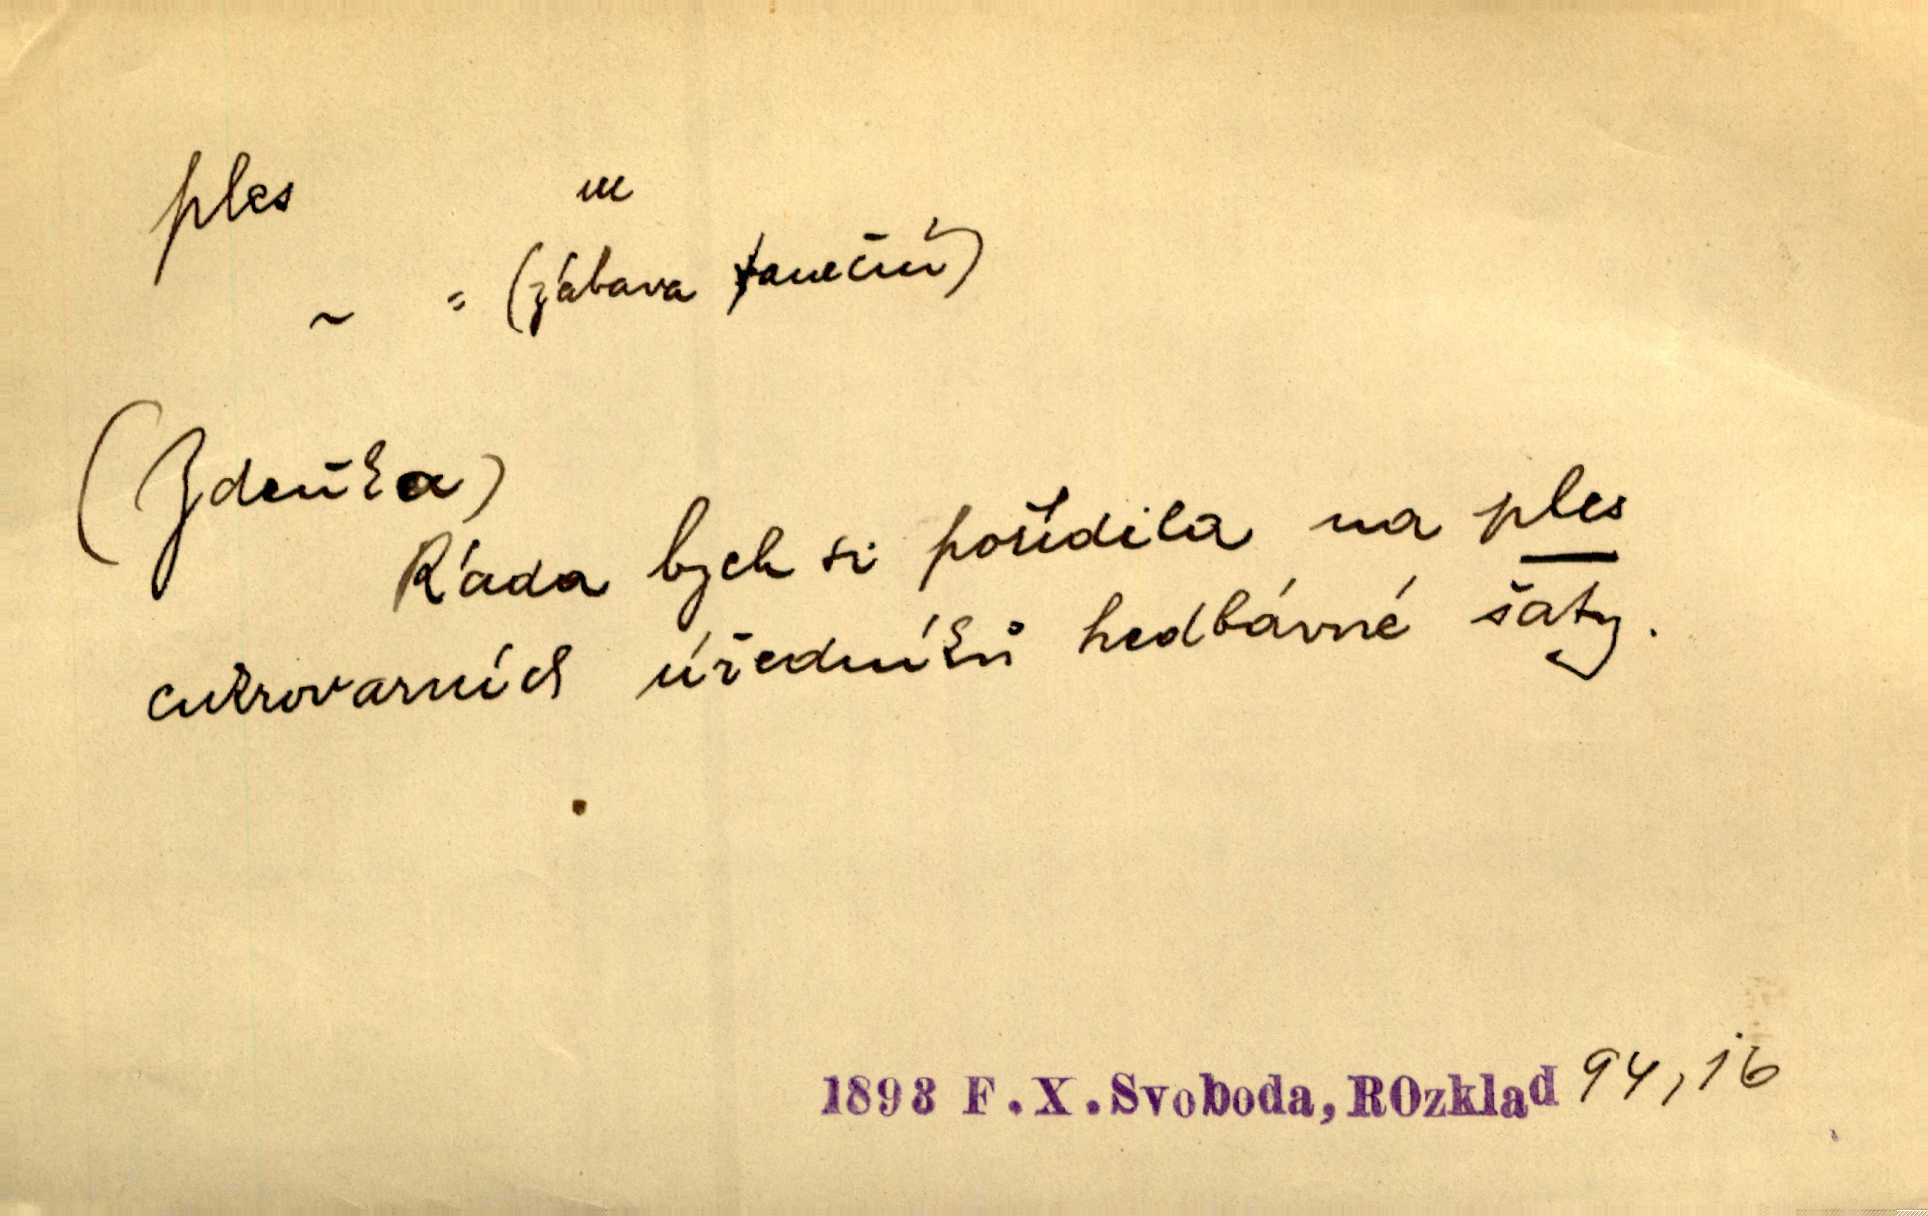 ples m
~ = (zábava taneční)
(Zdeňka)
Ráda bych si pořídila na ples
cukrovarních úředníků hedbávné šaty.
1893 F.X.Svoboda, ROzklad 94,16